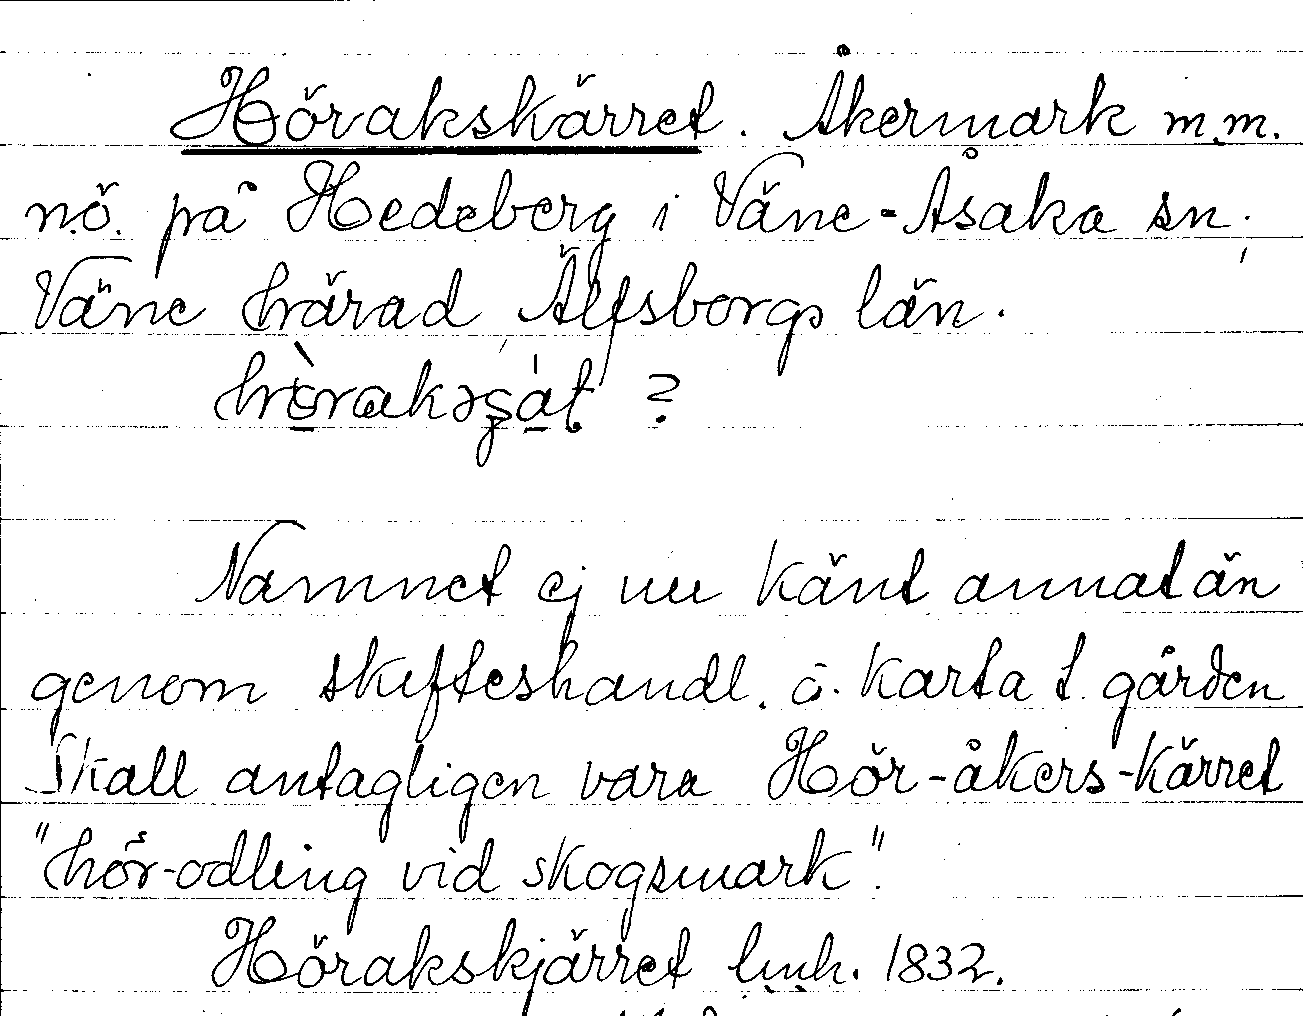 Hörakskärret. Åkermark m.m.
n.ö. på Hedeberg i Väne-Åsaka sn.
Väne härad Älfsborgs län.
?
Namnet ej nu känt annat än
genom skifteshandl. ö. karta t. gården
Skall antagligen vara Hör-åkers-kärret
"hör-odling vid skogsmark".
Hörakskjärret lmh. 1832.